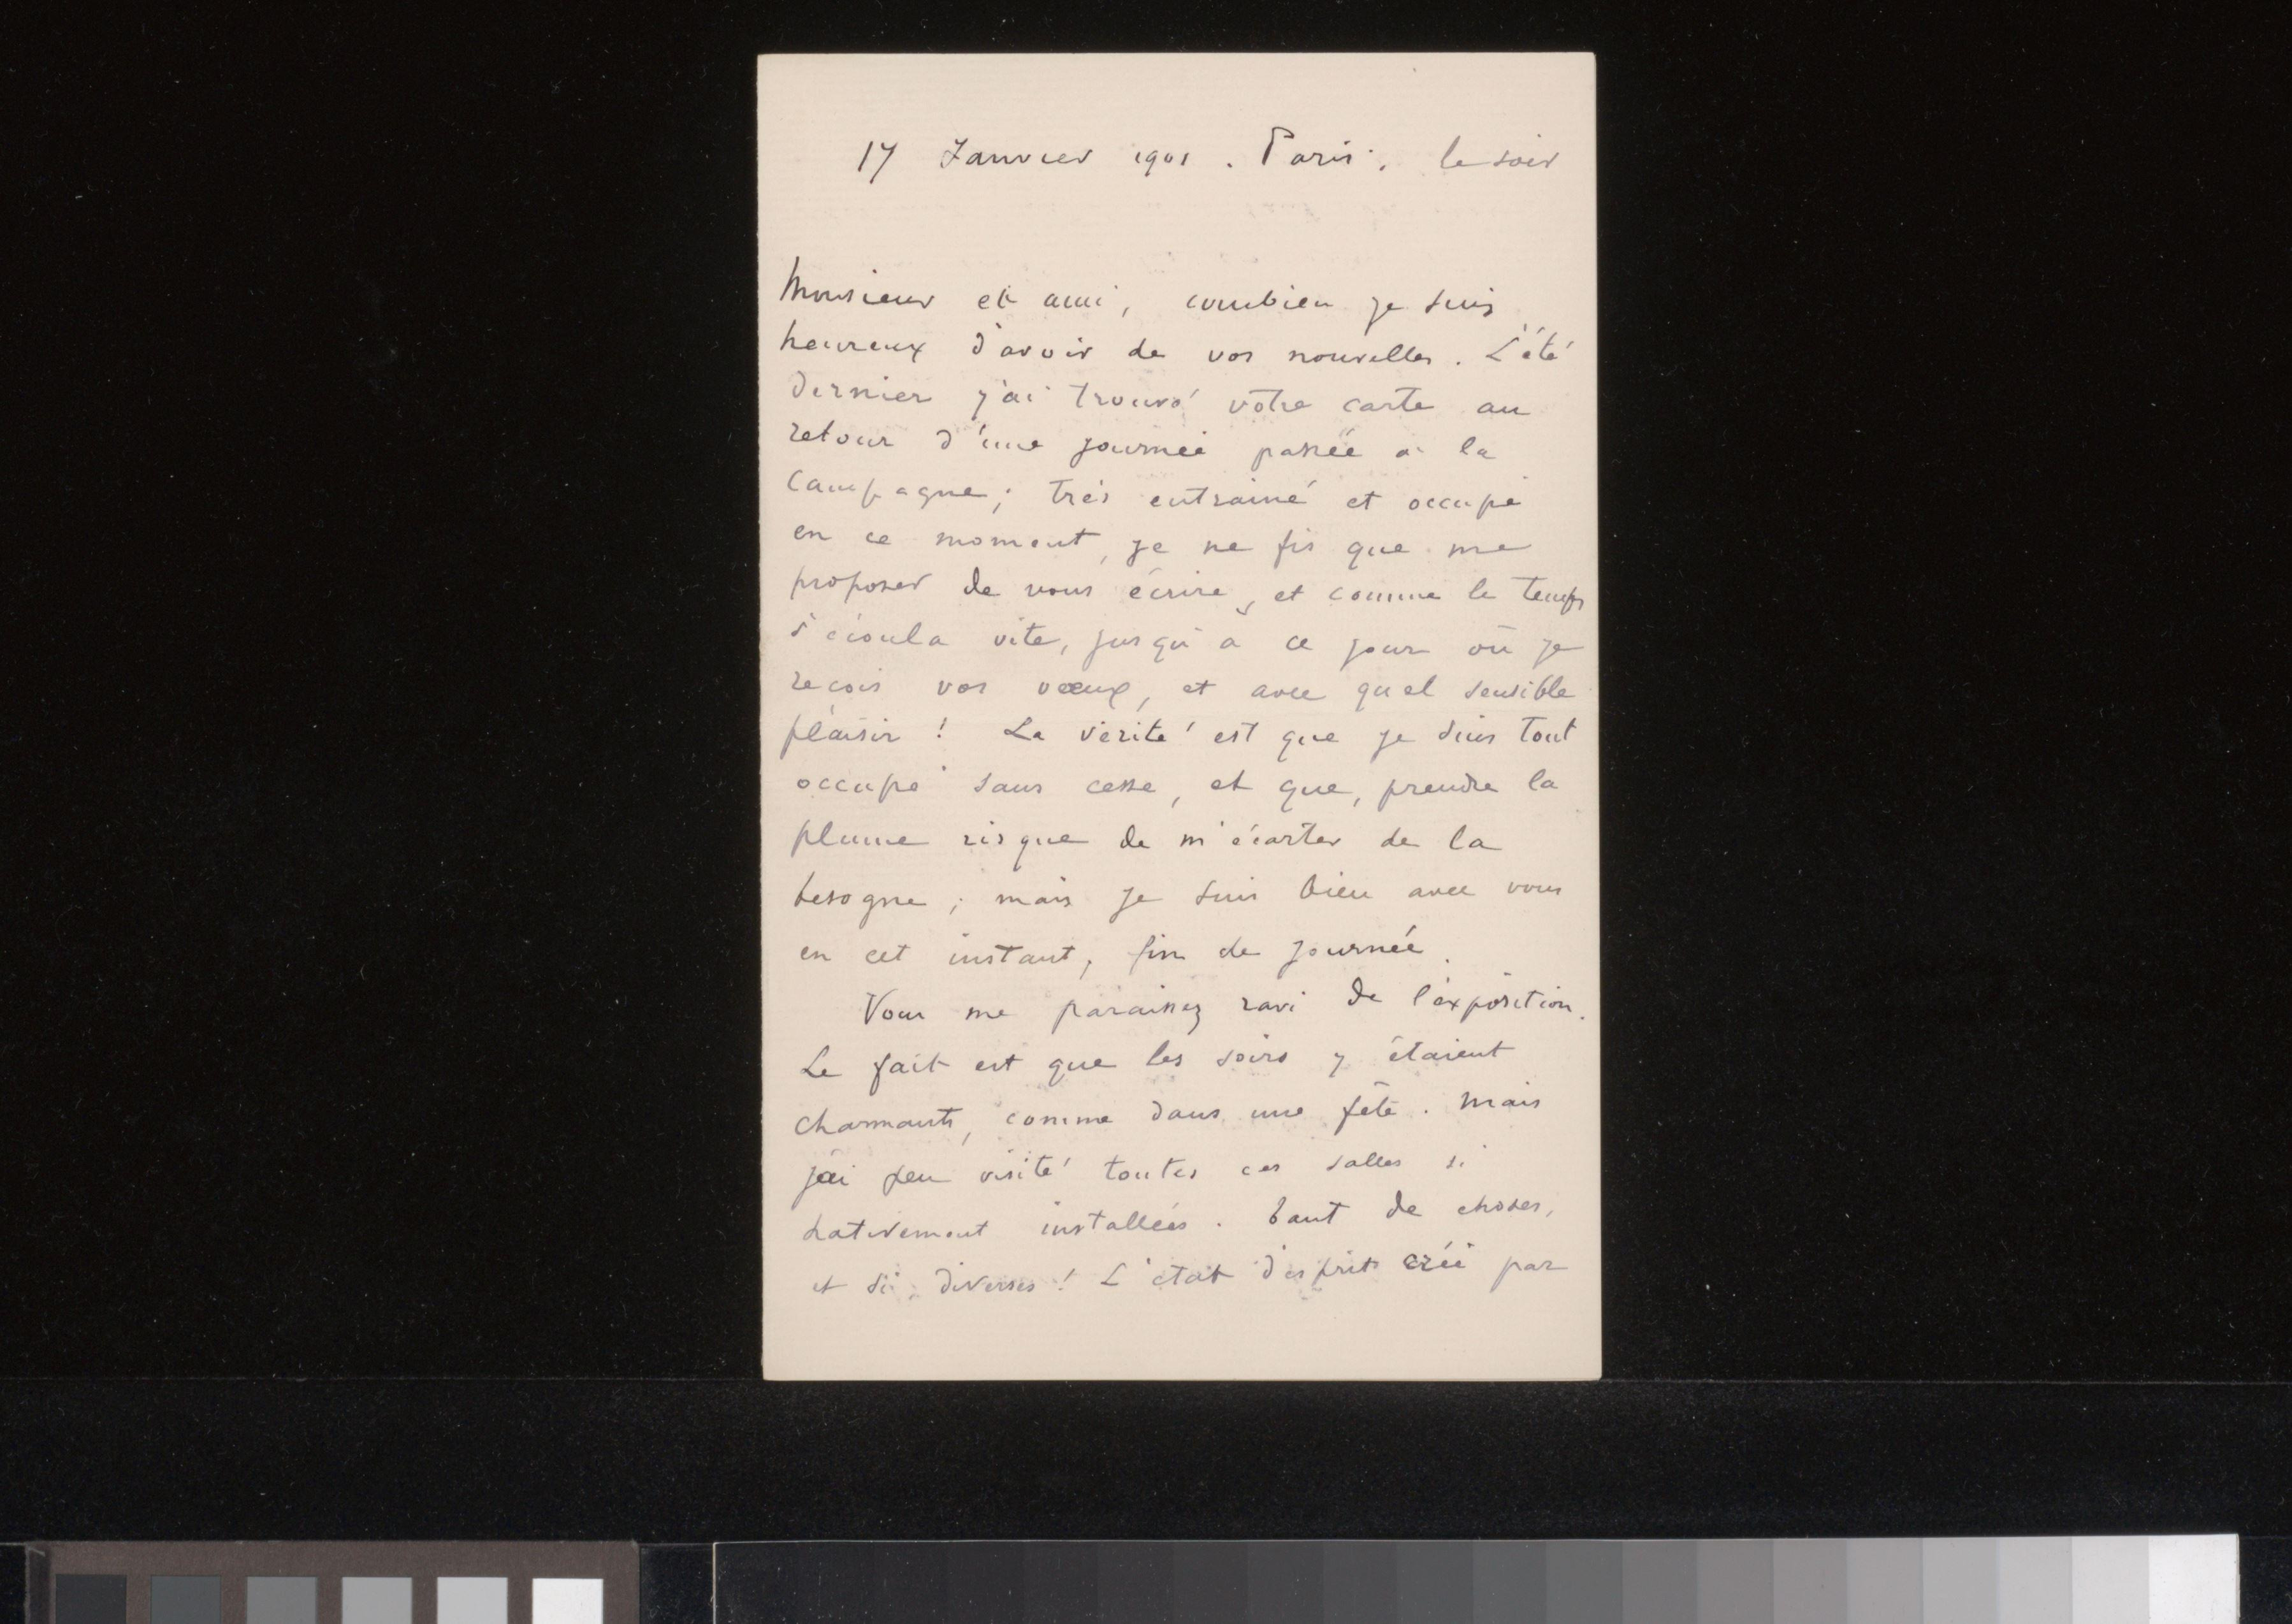 17 Janvier 1901. Paris. le soir
Monsieur et ami, combien je suis
heureux d'avoir de vos nouvelles. L'été
dernier j'ai trouvé vôtre carte au
retour d'une journée passée à la
campagne; très entrainé et occupé
en ce moment, je ne fis que me
proposer de vous écrire, et comme le temps
s'écoula vite, jusqu'à ce jour où je
reçois vos vœux, et avec quel sensible
plaisir ! La vérité est que je suis tout
occupé sans cesse, et que, prendre la
plume risque de m'écarter de la
besogne; mais je suis bien avec vous
en cet instant, fin de journée.
Vous me paraissez ravi de l'exposition.
Le fait est que les soirs y étaient
charmants, comme dans une fête. Mais
j'ai peu visité toutes ces salles si
hativement installées. Tant de choses,
et si diverses ! L'état d'esprit créé par